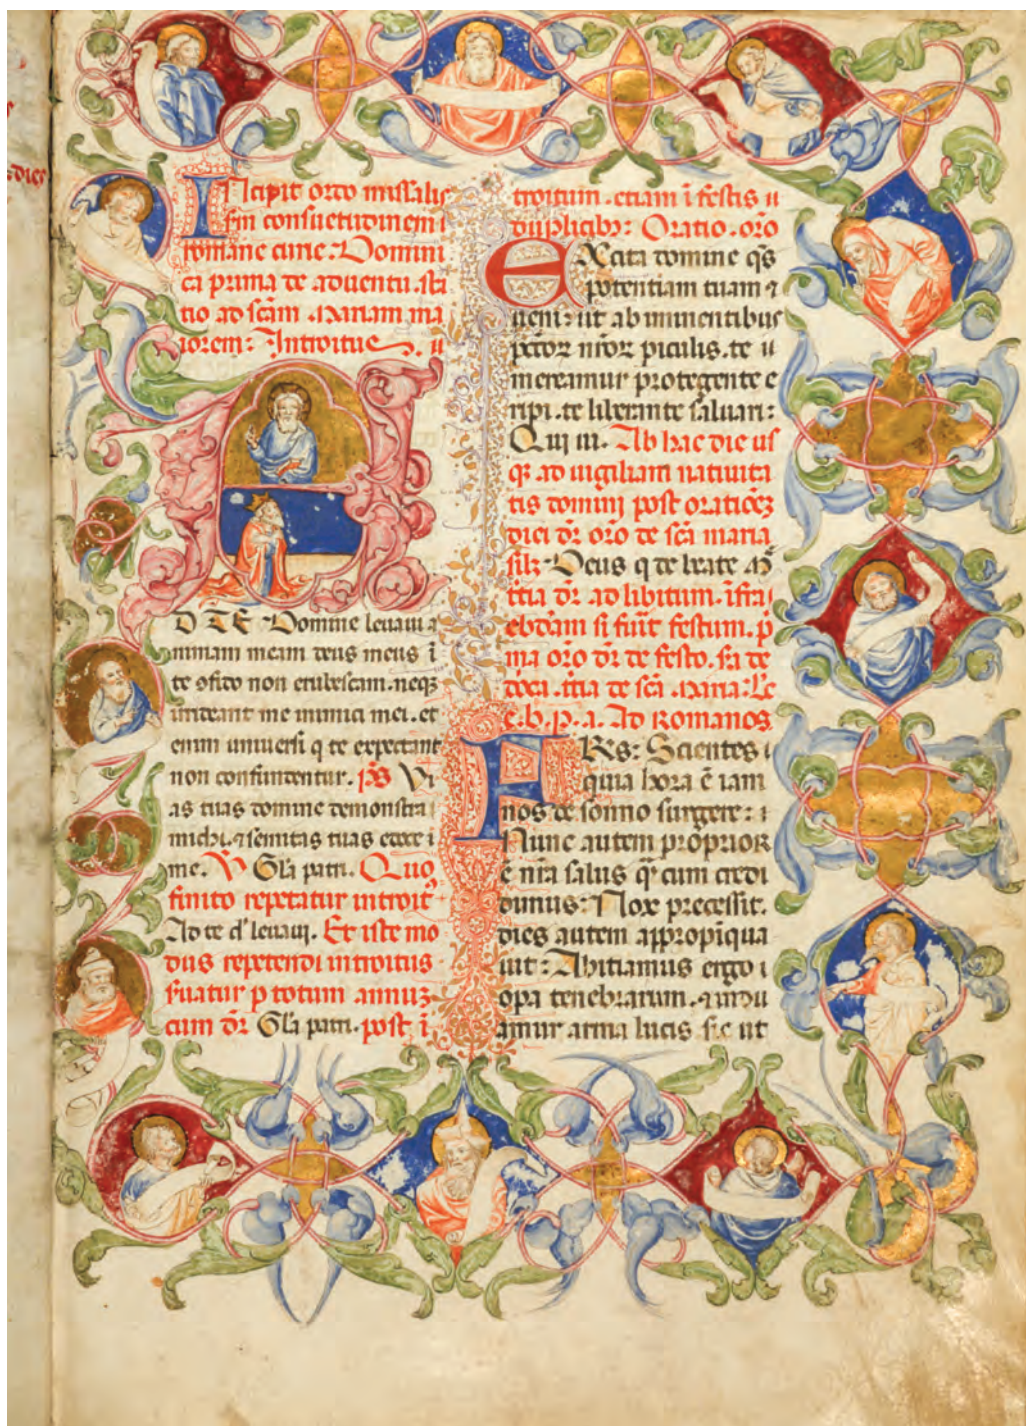 dies
Incipit ordo missalis
scḋm consuetudinem
romane curie. Domini
ca prima de aduentu. sta
tio ad scãm mariam ma
iorem: Introitus
AD TE Domine leuaui a
nimam meam deus meus ĩ
te ↄfido non erubescam. neq3
irrideant me inimici mei. et
enim uniuersi q te expectant
non confundentur. p̃s Vi
as tuas domine demonstra
michi. ⁊ semitas tuas edoce
me. V Gl̃a patri. Quo
finito repetatur introit᾿
Ad te d᾿ leuaui. Et iste mo
dus repetendi introitus
s̃uatur p totum annuz
cum dr̃ Gl̃a patri. post ĩ
troitum. etiam ĩ festis
duplicib3: Oratio. oro
EXcita domine q̃s
potentiam tuam ⁊
ueni: ut ab iminentibus
pccõꝝ nr̃oꝝ piculis. te
mereamur protegente e
ripi. te liberante saluari:
Qui ui. Ab hac die us
q3 ad uigiliam natiuita
tis domini post orationẽ3
diei dr̃ oro de scã maria
sil3. Deus q de beate M
tria dr̃ ad libitum. ĩfra
ebdãm si fũit festum. p
ma oro dr̃ de festo. sa de
dñca. tria de scã Maria: Lc̃
e. b. p. a. Ad Romanos
FRs: Scientes
quia hora ẽ iam
nos de somno surgere:
Nunc autem propior
ẽ nr̃a salus q̃ cum credi
dimus: Nox precessit.
dies autem appropiqua
uit: Abitiamus ergo
opa tenebrarum. ⁊ indu
amur arma lucis sic ut